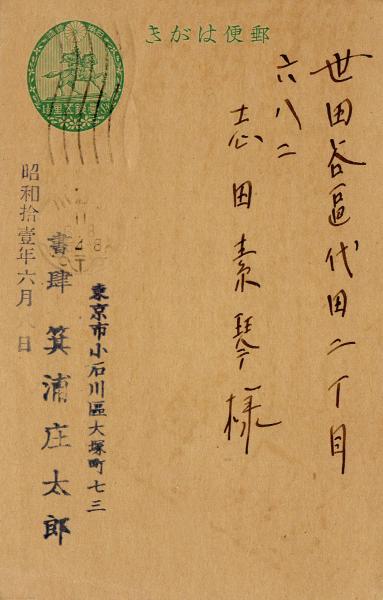 郵便はがき
世田谷區代田二丁目
六八二
志田素琴様
東京市小石川區大塚町七三
書肆 箕浦庄太郎
昭和拾壹年六月 日